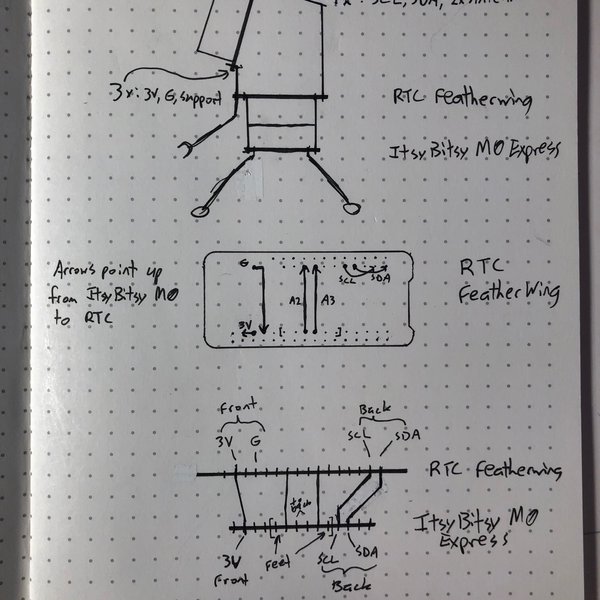 SCL, SDA,
3x: 3V, G, support
RTC Featherwing
ItsyBitsy M0 Express
Arrows point up
from ItsyBitsy M0
to RTC
G
A2
A3
SCL
SDA
3V
RTC
FeatherWing
Front
3V
G
Back
SCL
SDA
RTC Featherwing
ItsyBitsy M0
Express
3V
Front
Feet
SCL
SDA
Back